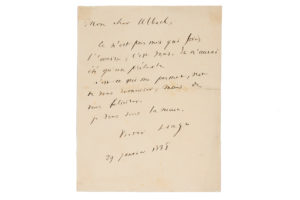 Mon cher Ulbach,
Ce n'est pas moi qui fais
l'œuvre, c'est vous. Je n'aurai
été qu'un prétexte.
C'est ce qui me permet, non
de vous remercier, mais de
vous féliciter.
Je vous serre la main.
Victor Hugo
29 janvier